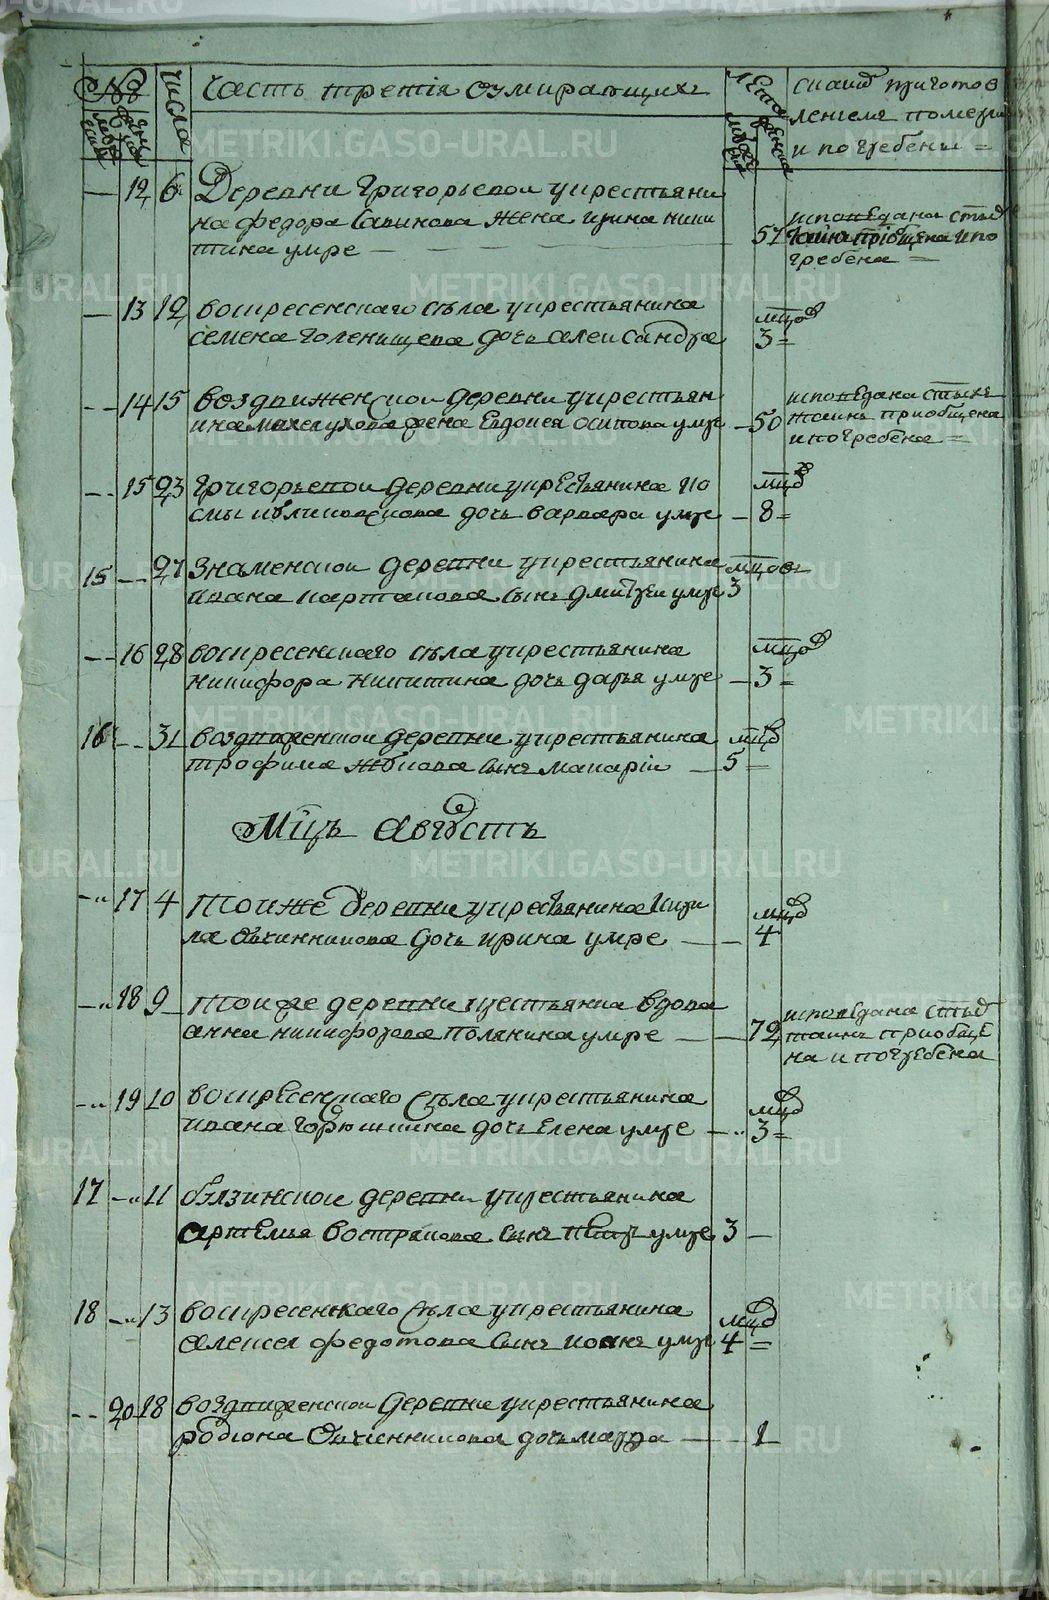 №
числа
Часть третія оумирающихъ
лета
мужеска
женска
с какимъ приготов
лениемъ померли
и погребены =
12 6 Деревни Григорьевои укрестьяни
на федора Савинова жена ирина ники
тина умре — 57
исповедана стыхъ
таинъ приобщена ипо
гребена =
13 12 воскресенскаго села укрестьянина
семена Голенищева дочь александра
мцов
3 =
14 15 воздвиженскои деревни укрестьян
ина жена Евдокея осипова умре — 50
исповедана стыхъ
таинъ приобщена
ипогребена =
15 23 Григорьевои деревни укрестьянина ко
смы дочь варвара умре — 8 =
мцов
15 27 Знаменскои деревни укрестьянина
ивана картанова сынъ дмитреи умре 3
мцовъ
16 28 воскресенскаго села укрестьянина
никифора никитина дочь дарья умре — 3 =
мцов
16 31 воздвиженскои деревни укрестьянина
трофима сынъ макаріи — 5 =
мцов
Мцъ Августъ
17 4 тоиже деревни укрестьянина кири
ла Овчинникова дочь ирина умре — 4
мцов
18 9 тоиже деревни вдова
анна никифорова полянина умре — 72
исповедана стыхъ
таинъ приобще
на и погребена
19 10 воскресенскаго села укрестьянина
ивана Горюшкина дочь елена умре — 3 =
мцов
17 11 бызинскои деревни укрестьянина
артемья вострикова сынъ петръ умре 3 —
18 13 воскресенскаго села укрестьянина
алексея федотова сынъ иоанъ умре 4 =
мцов
20 18 воздвиженскои деревни укрестьянина
родіона Овчинникова дочь мавра — 1
METRIKI.GASO-URAL.RU